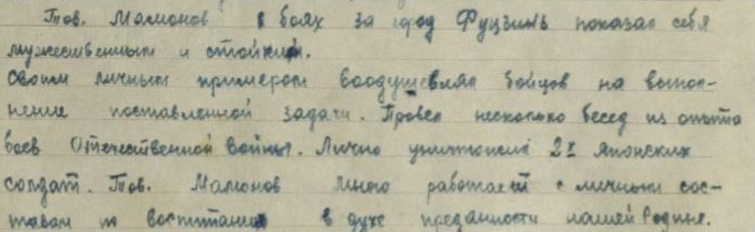 Тов. Мамонов в боях за город Фуцзинь показал себя
мужественным и стойким.
Своим личным примером воодушевлял бойцов на выпол-
нение поставленной задачи. Провел несколько бесед из опыта
боев Отечественной войны. Лично уничтожил 2х японских
солдат. Тов. Мамонов много работает с личным сос-
тавом по воспитанию в духе преданности нашей Родине.